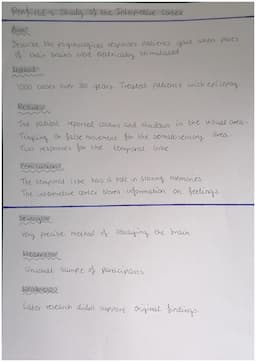 Penfield's Study of the Interpretive Cortex
Aim:
Describe the psychological responses patients gave when parts
of their brains were electrically stimulated
Method:
1000 cases over 30 years. Treated patients with epilepsy
Results:
The patient reported colours and shadows in the visual area.
Tingling or false movement for the somatosensory area.
Two responses for the temporal lobe
Conclusions:
The temporal lobe has a role in storing memories
The interpretive cortex stores information on feelings
Strength:
Very precise method of studying the brain
Weakness:
Unusual sample of participants
Weakness:
Later research didn't support original findings